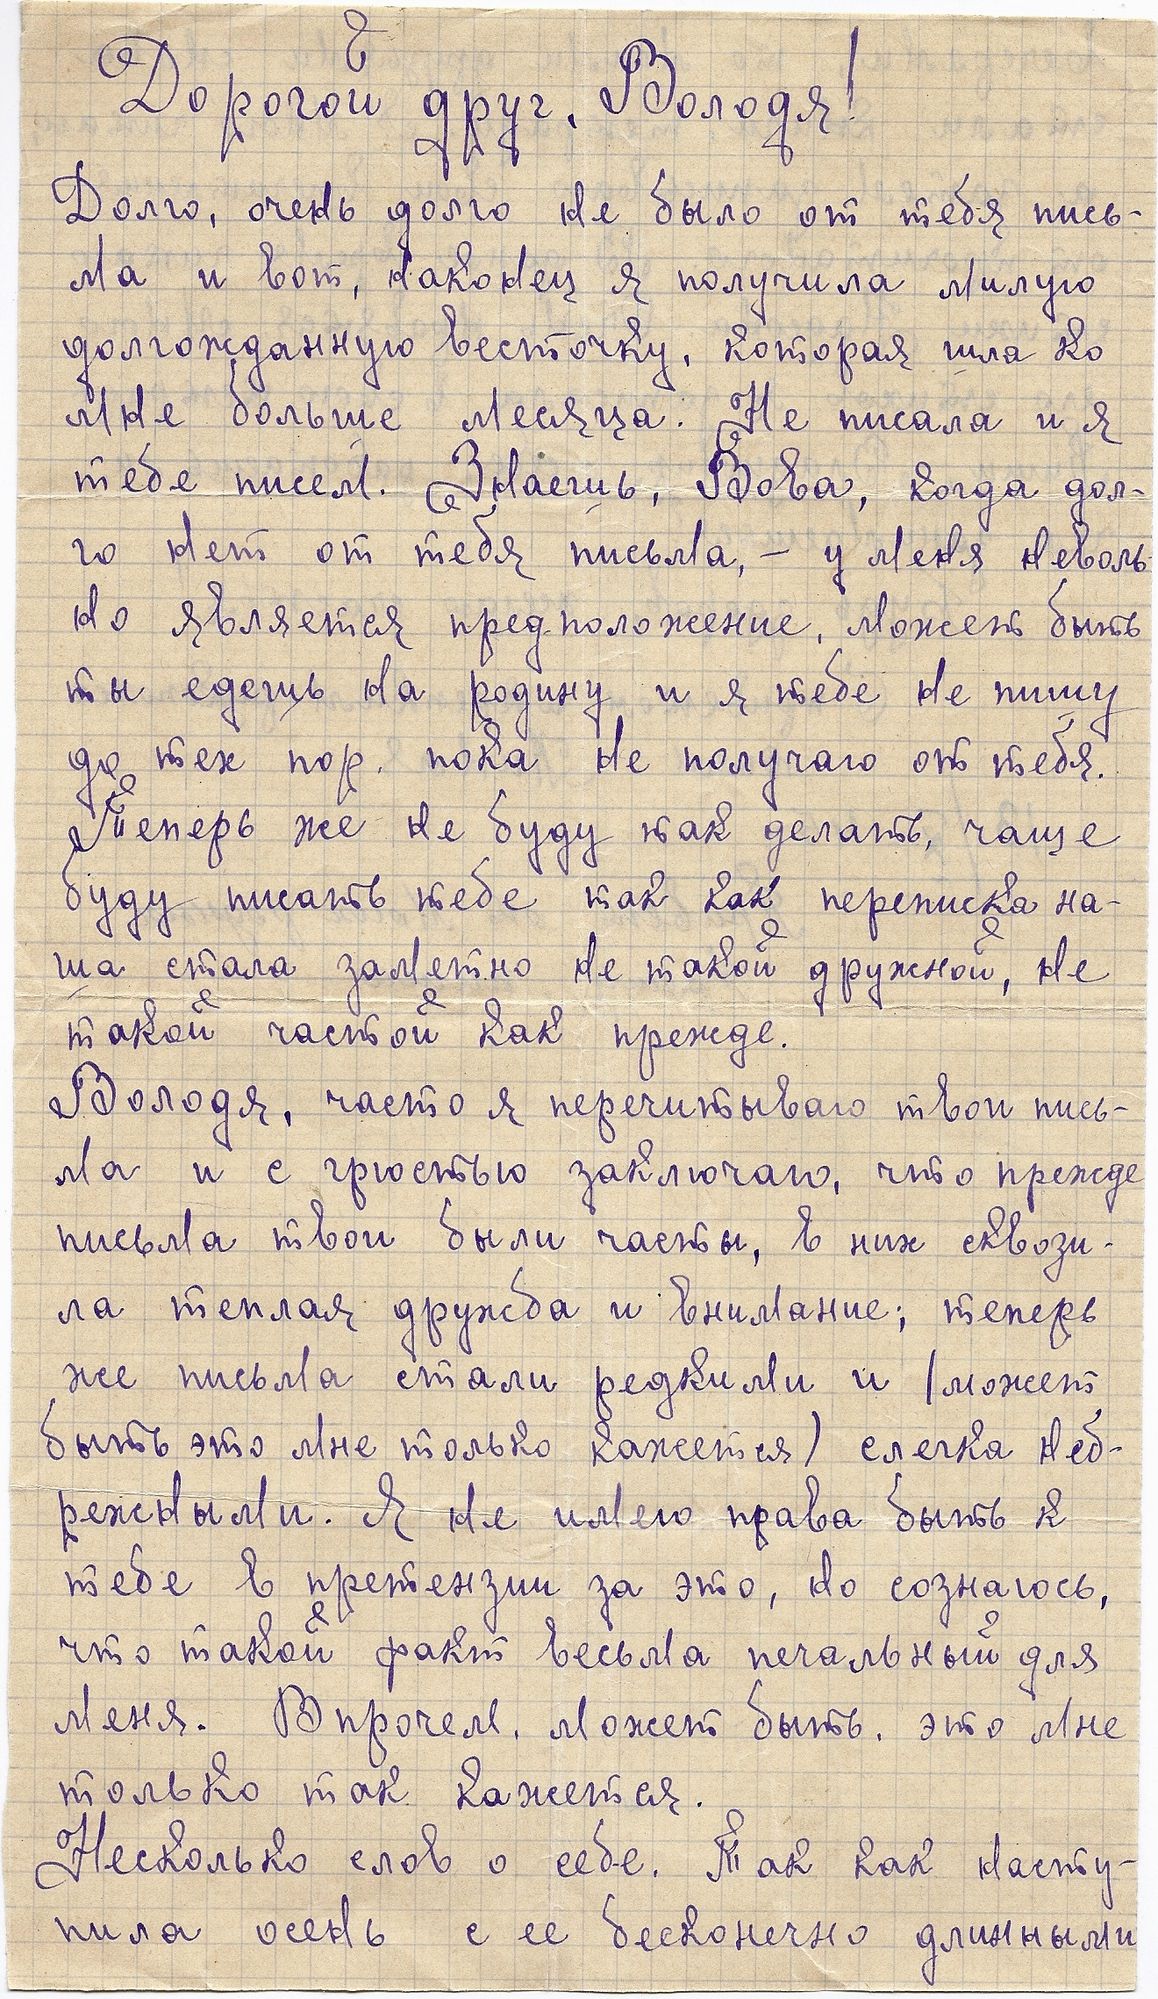 Дорогой друг, Володя!
Долго, очень долго не было от тебя пись-
ма и вот, наконец я получила милую
долгожданную весточку, которая шла ко
мне больше месяца. Не писала и я
тебе писем. Знаешь, Вова, когда дол-
го нет от тебя письма, – у меня неволь-
но является предположение, может быть
ты едешь на родину и я тебе не пишу
до тех пор, пока не получаю от тебя.
Теперь же не буду так делать, чаще
буду писать тебе так как переписка на-
ша стала заметно не такой дружной, не
такой частой как прежде.
Володя, часто я перечитываю твои пись-
ма и с грюстью заключаю, что прежде
письма твои были часты, в них сквози-
ла теплая дружба и внимание; теперь
же письма стали редкими и (может
быть это мне только кажется) слегка неб-
режными. Я не имею права быть к
тебе в претензии за это, но сознаюсь,
что такой факт весьма печальный для
меня. Впрочем, может быть, это мне
только так кажется.
Несколько слов о себе. Так как насту-
пила осень с ее бесконечно длинными